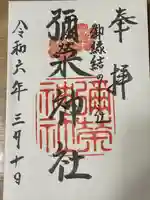 奉拝
御縁結の社
彌榮神社
令和六年 三月十日